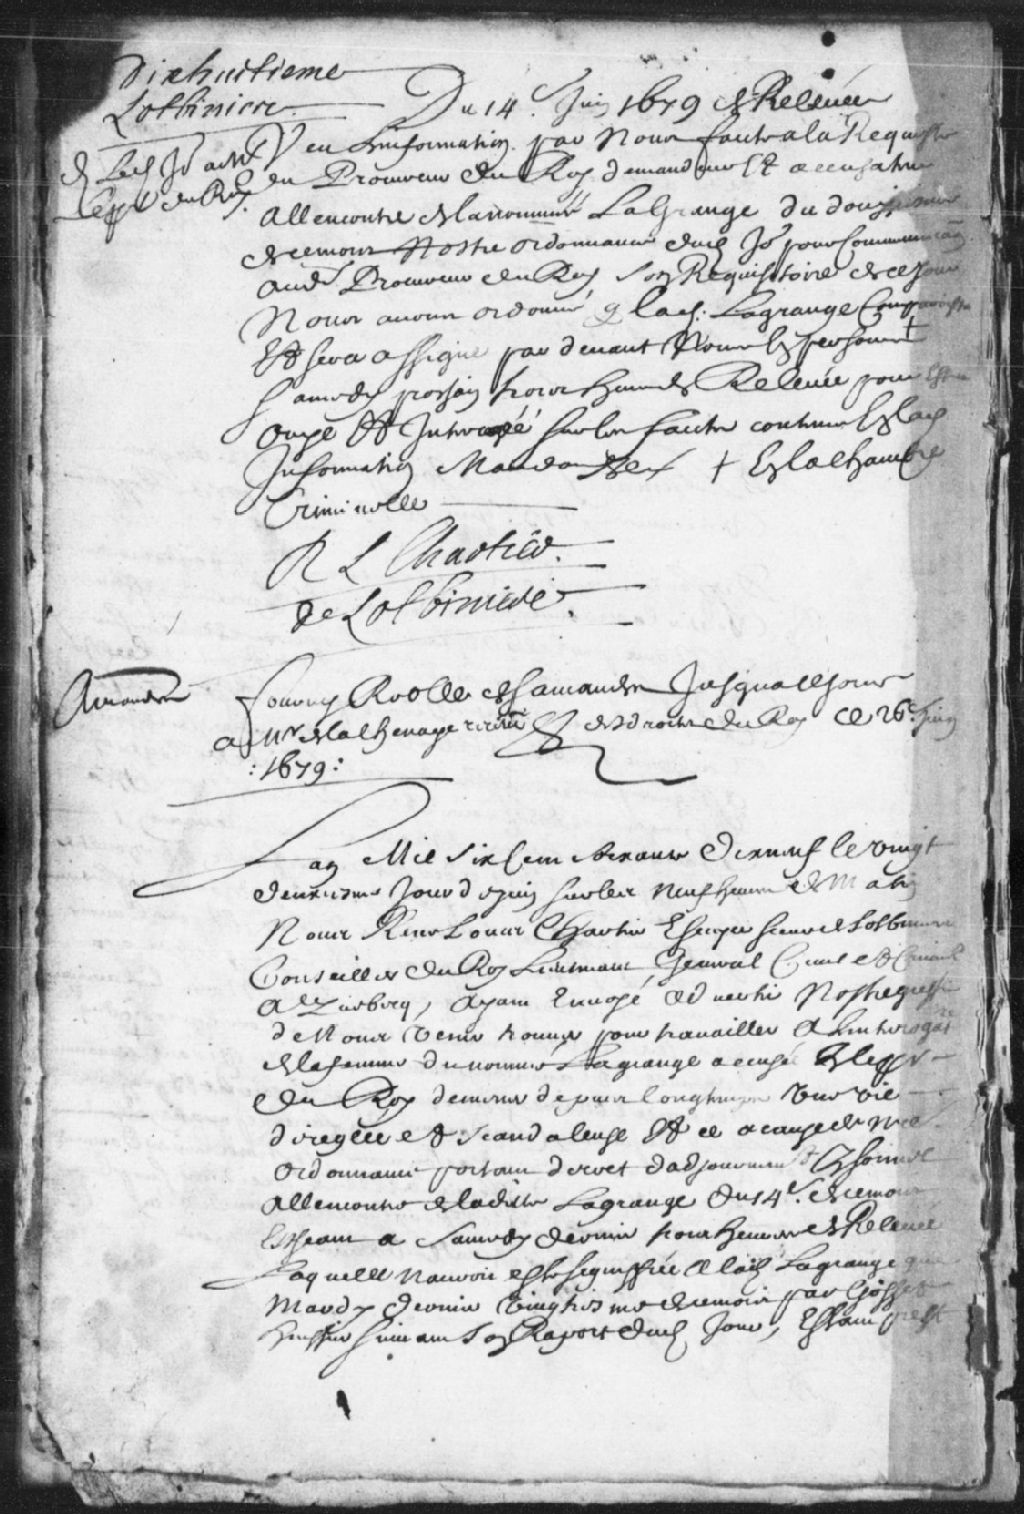 Dixhuitieme
Lotbiniere
Du 14e Juin 1679 de Relevée
Veu Linformation par Nous faite a la Requeste
du Procureur du Roy demandeur et accusateur
Allencontre de la nommée LaGrange du douziesme
de ce mois Nostre ordonnance dud Jo pour Communicaon
aud Procureur du Roy Son Requisitoire de ce Jour
Nous avons ordonné q lad. Lagrange Comparoistra
Et sera assignée par devant Nous En personne +
Samedy prochain trois heures de Relevée pour Estre
ouye Et Interogé sur les faits contenus En lad
Information Mandons + En la Chambre
Criminelle
R L Chartier
de Lotbiniere
Amandes
fourny Rolle des amandes Jusqua ce Jour
a Mr de la Chenaye des droits du Roy Ce 26e Juin
: 1679 :
Lan Mil Six Cens soixante dix neuf le vingt
deuxiesme Jour de Juin sur les neuf heures de Matin
Nous Rene Louis Chartier Escuyer sieur de Lotbiniere
Conseiller du Roy Lieutenant General Civil et Criminel
a Quebecq, Ayant Envoyé advertir Nostre greffier
de Nous venir trouver pour travailler a Linterogatre
de la femme du nommé Lagrange accusée
du Roy de mener depuis longtemps une vie
diregleé et scandaleuse Et ce a cause de nre
ordonnance portant decret dadjournement Personnel
Allencontre de ladite Lagrange du 14e de ce mois
Escheant a Samedy dernier trois heures de Relevée
Laquelle nauroit esté signiffiée a lad Lagrange que
Mardy dernier vingtiesme de ce mois par Gosset
huissier suivant Son Raport dud Jour, Estant prest